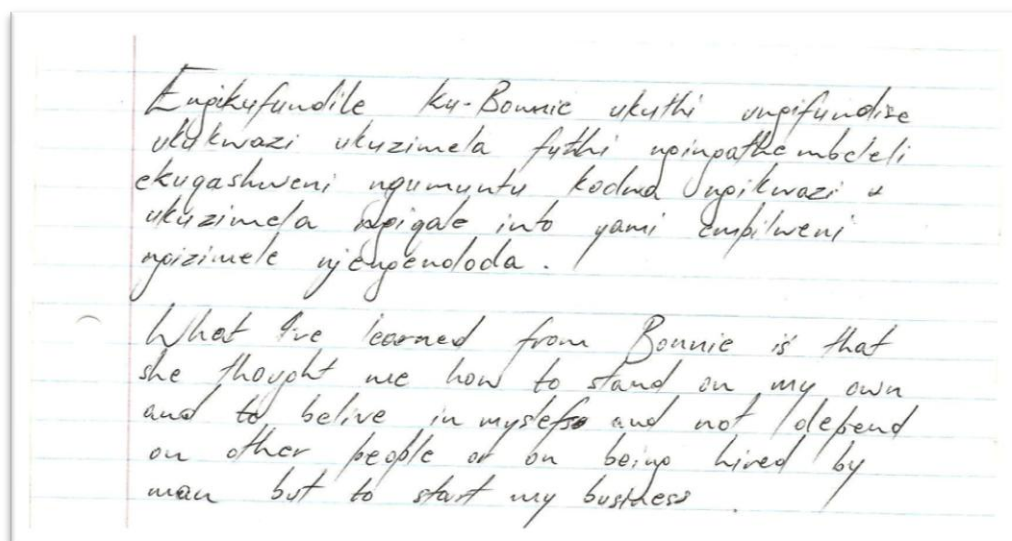 Engikufundile ku-Bonnie ukuthi ungifundise
ukukwazi ukuzimela futhi ngingathembeleli
ekuqashweni ngumuntu kodwa ngikwazi u
ukuzimela ngiqale into yami empilweni
ngizimele njengendoda.
What I've learned from Bonnie is that
she thought me how to stand on my own
and to belive in myslefs and not depend
on other people or on being hired by
man but to start my business.